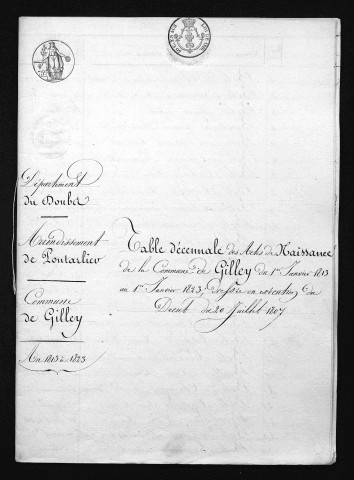 Département
du Doubs
Arrondissement
de Pontarlier
Commune
de Gilley
An 1813 à 1823
Table décennale des Actes de Naissance
de la Commune de Gilley du 1er Janvier 1813
au 1er Janvier 1823, dressée en exécution du
Décret du 20 Juillet 1807